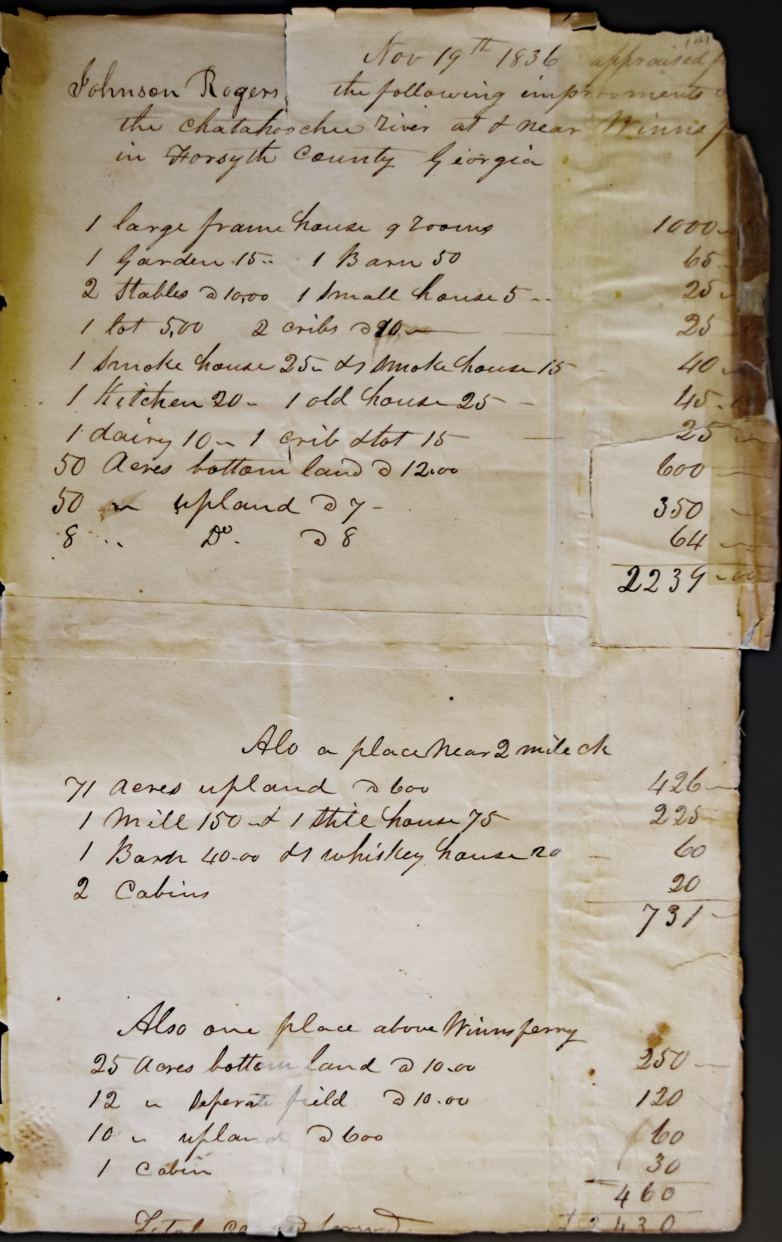 Nov 19th 1836 appraised
Johnson Rogers the following improvments
the chatahoochee River at & near Winns
in Forsyth County Georgia
1 large frame house 9 rooms 1000
1 Garden 15.. 1 Barn 50 65
2 Stables @ 10,00 1 small house 5 -- 25
1 lot 5,00 2 cribs @ 10 25
1 Smoke house 25 & 1 smoke house 15 40
1 Kitchen 20 - 1 old house 25 - 45
1 dairy 10 - 1 crib & lot 15 25
50 Acres bottom land @ 12.00 600
50 " upland @ 7 - 350
8 " Do. @ 8 64
2239
Alo a place near 2 mile ck
71 Acres upland @ 600 426
1 Mill 150 & 1 Still house 75 225
1 Barn 40.00 & 1 whiskey house 20 60
2 Cabins 20
731
Also one place above Winns ferry
25 Acres bottom land @ 10.00 250
12 " Seperate field @ 10.00 120
10 " upland @ 600 60
1 Cabin 30
460
Total forward 3430